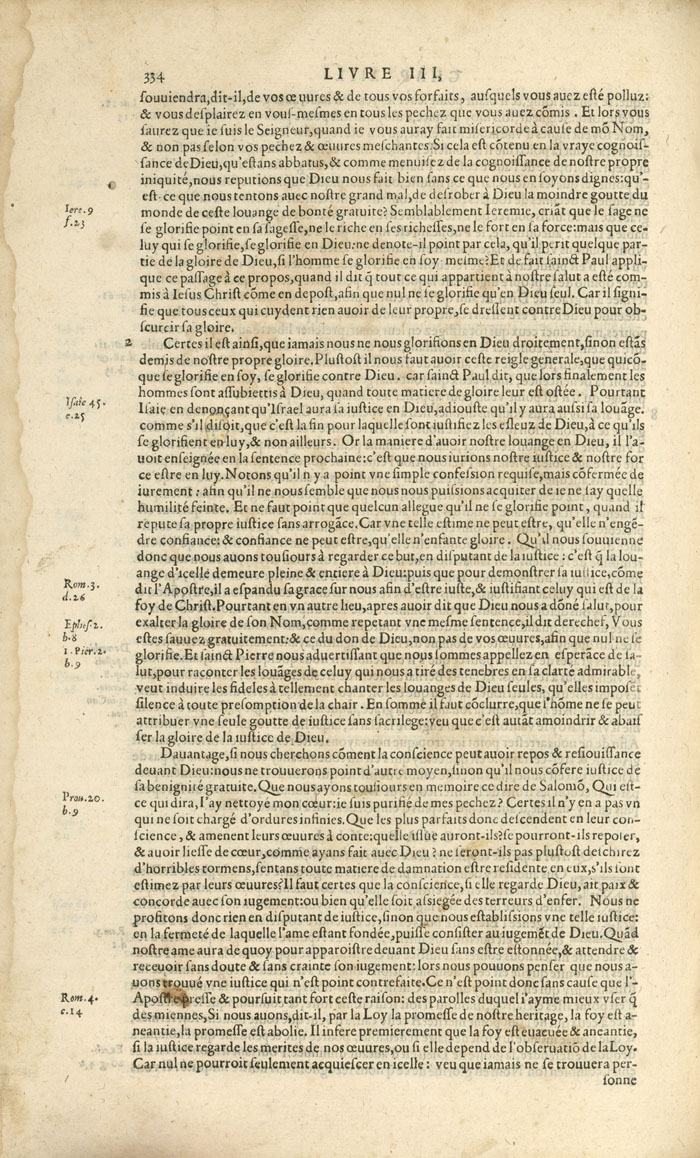 334
LIVRE III,
souuiendra,dit-il,de vos œuures & de tous vos forfaits, ausquels vous auez esté polluz:
& vous desplairez en vous-mesmes en tous les pechez que vous auez cõmis . Et lors vous
saurez que ie suis le Seigneur,quand ie vous auray fait misericorde à cause de mõ Nom,
& non pas selon vos pechez & œuures meschantes.Si cela est cõtenu en la vraye cognois-
sance de Dieu,qu'estans abbatus,& comme menuisez de la cognoissance de nostre propre
iniquité,nous reputions que Dieu nous fait bien sans ce que nous en soyons dignes:qu'-
est-ce que nous tentons auec nostre grand mal,de desrober à Dieu la moindre goutte du
Iere.9
monde de ceste louange de bonté gratuite? Semblablement Ieremie, criãt que le sage ne
f.23
se glorifie point en sa sagesse,ne le riche en ses richesses,ne le fort en sa force:mais que ce-
luy qui se glorifie,se glorifie en Dieu:ne denote-il point par cela, qu'il perit quelque par-
tie de la gloire de Dieu,si l'homme se glorifie en soy-mesme?Et de fait sainct Paul appli-
que ce passage à ce propos,quand il dit q̃ tout ce qui appartient à nostre salut a esté com-
mis à Iesus Christ cõme en depost,afin que nul ne se glorifie qu'en Dieu seul. Car il signi-
fie que tous ceux qui cuydent rien auoir de leur propre,se dressent contre Dieu pour ob-
scurcir sa gloire.
2
Certes il est ainsi,que iamais nous ne nous glorifions en Dieu droitement,sinon estãs
demis de nostre propre gloire.Plustost il nous faut auoir ceste reigle generale,que quicõ-
que se glorifie en soy, se glorifie contre Dieu . car sainct Paul dit, que lors finalement les
hommes sont assubiettis à Dieu, quand toute matiere de gloire leur est ostée . Pourtant
Isaie 45.
Isaie en denonçant qu'Israel aura sa iustice en Dieu,adiouste qu'il y aura aussi sa louãge.
e.25
comme s'il disoit,que c'est la fin pour laquelle sont iustifiez les esleuz de Dieu,à ce qu'ils
se glorifient en luy,& non ailleurs . Or la maniere d'auoir nostre louange en Dieu, il l'a-
uoit enseignée en la sentence prochaine:c'est que nous iurions nostre iustice & nostre for
ce estre en luy.Notons qu'il n'y a point vne simple confession requise,mais cõfermée de
iurement : afin qu'il ne nous semble que nous nous puissions acquiter de ie ne say quelle
humilité feinte. Et ne faut point que quelcun allegue qu'il ne se glorifie point , quand il
repute sa propre iustice sans arrogãce.Car vne telle estime ne peut estre, qu'elle n'engẽ-
dre confiance: & confiance ne peut estre,qu'elle n'enfante gloire . Qu'il nous souuienne
donc que nous auons tousiours à regarder ce but,en disputant de la iustice : c'est q̃ la lou-
ange d'icelle demeure pleine & entiere à Dieu:puis que pour demonstrer sa iustice,cõme
Rom.3.
dit l'Apostre,il a espandu sa grace sur nous afin d'estre iuste,& iustifiant celuy qui est de la
d.26
foy de Christ.Pourtant en vn autre lieu,apres auoir dit que Dieu nous a dõné salut,pour
Ephes.2.
exalter la gloire de son Nom,comme repetant vne mesme sentence,il dit derechef, Vous
b.8
estes sauuez gratuitement:& ce du don de Dieu,non pas de vos œuures,afin que nul ne se
1.Pier.2.
glorifie.Et sainct Pierre nous aduertissant que nous sommes appellez en esperãce de sa-
b.9
lut,pour raconter les louãges de celuy qui nous a tiré des tenebres en sa clarté admirable,
veut induire les fideles à tellement chanter les louanges de Dieu seules, qu'elles imposẽt
silence à toute presomption de la chair . En somme il faut cõclurre,que l'hõme ne se peut
attribuer vne seule goutte de iustice sans sacrilege:veu que c'est autãt amoindrir & abais
ser la gloire de la iustice de Dieu.
Dauantage,si nous cherchons cõment la conscience peut auoir repos & resiouissance
deuant Dieu:nous ne trouuerons point d'autre moyen,sinon qu'il nous cõfere iustice de
sa benignité gratuite. Que nous ayons tousiours en memoire ce dire de Salomõ, Qui est-
Prou.20.
ce qui dira, I'ay nettoyé mon cœur:ie suis purifié de mes pechez? Certes il n'y en a pas vn
b.9
qui ne soit chargé d'ordures infinies. Que les plus parfaits donc descendent en leur con-
science , & amenent leurs œuures à conte:quelle issue auront-ils?se pourront-ils reposer,
& auoir liesse de cœur,comme ayans fait auec Dieu ? ne seront-ils pas plustost deschirez
d'horribles tormens,sentans toute matiere de damnation estre residente en eux,s'ils sont
estimez par leurs œuures?Il faut certes que la conscience,si elle regarde Dieu, ait paix &
concorde auec son iugement:ou bien qu'elle soit assiegée des terreurs d'enfer. Nous ne
profitons donc rien en disputant de iustice,sinon que nous establissions vne telle iustice:
en la fermeté de laquelle l'ame estant fondée,puisse consister au iugemẽt de Dieu. Quãd
nostre ame aura de quoy pour apparoistre deuant Dieu sans estre estonnée,& attendre &
receuoir sans doute & sans crainte son iugement: lors nous pouuons penser que nous a-
uons trouué vne iustice qui n'est point contrefaite.Ce n'est point donc sans cause que l'-
Rom.4.
Apostre presse & poursuit tant fort ceste raison: des parolles duquel i'ayme mieux vser q̃
c.14
des miennes,Si nous auons,dit-il, par la Loy la promesse de nostre heritage, la foy est a-
neantie,la promesse est abolie. Il infere premierement que la foy est euacuée & aneantie,
si la iustice regarde les merites de nos œuures,ou si elle depend de l'obseruatiõ de la Loy.
Car nul ne pourroit seulement acquiescer en icelle : veu que iamais ne se trouuera per-
sonne